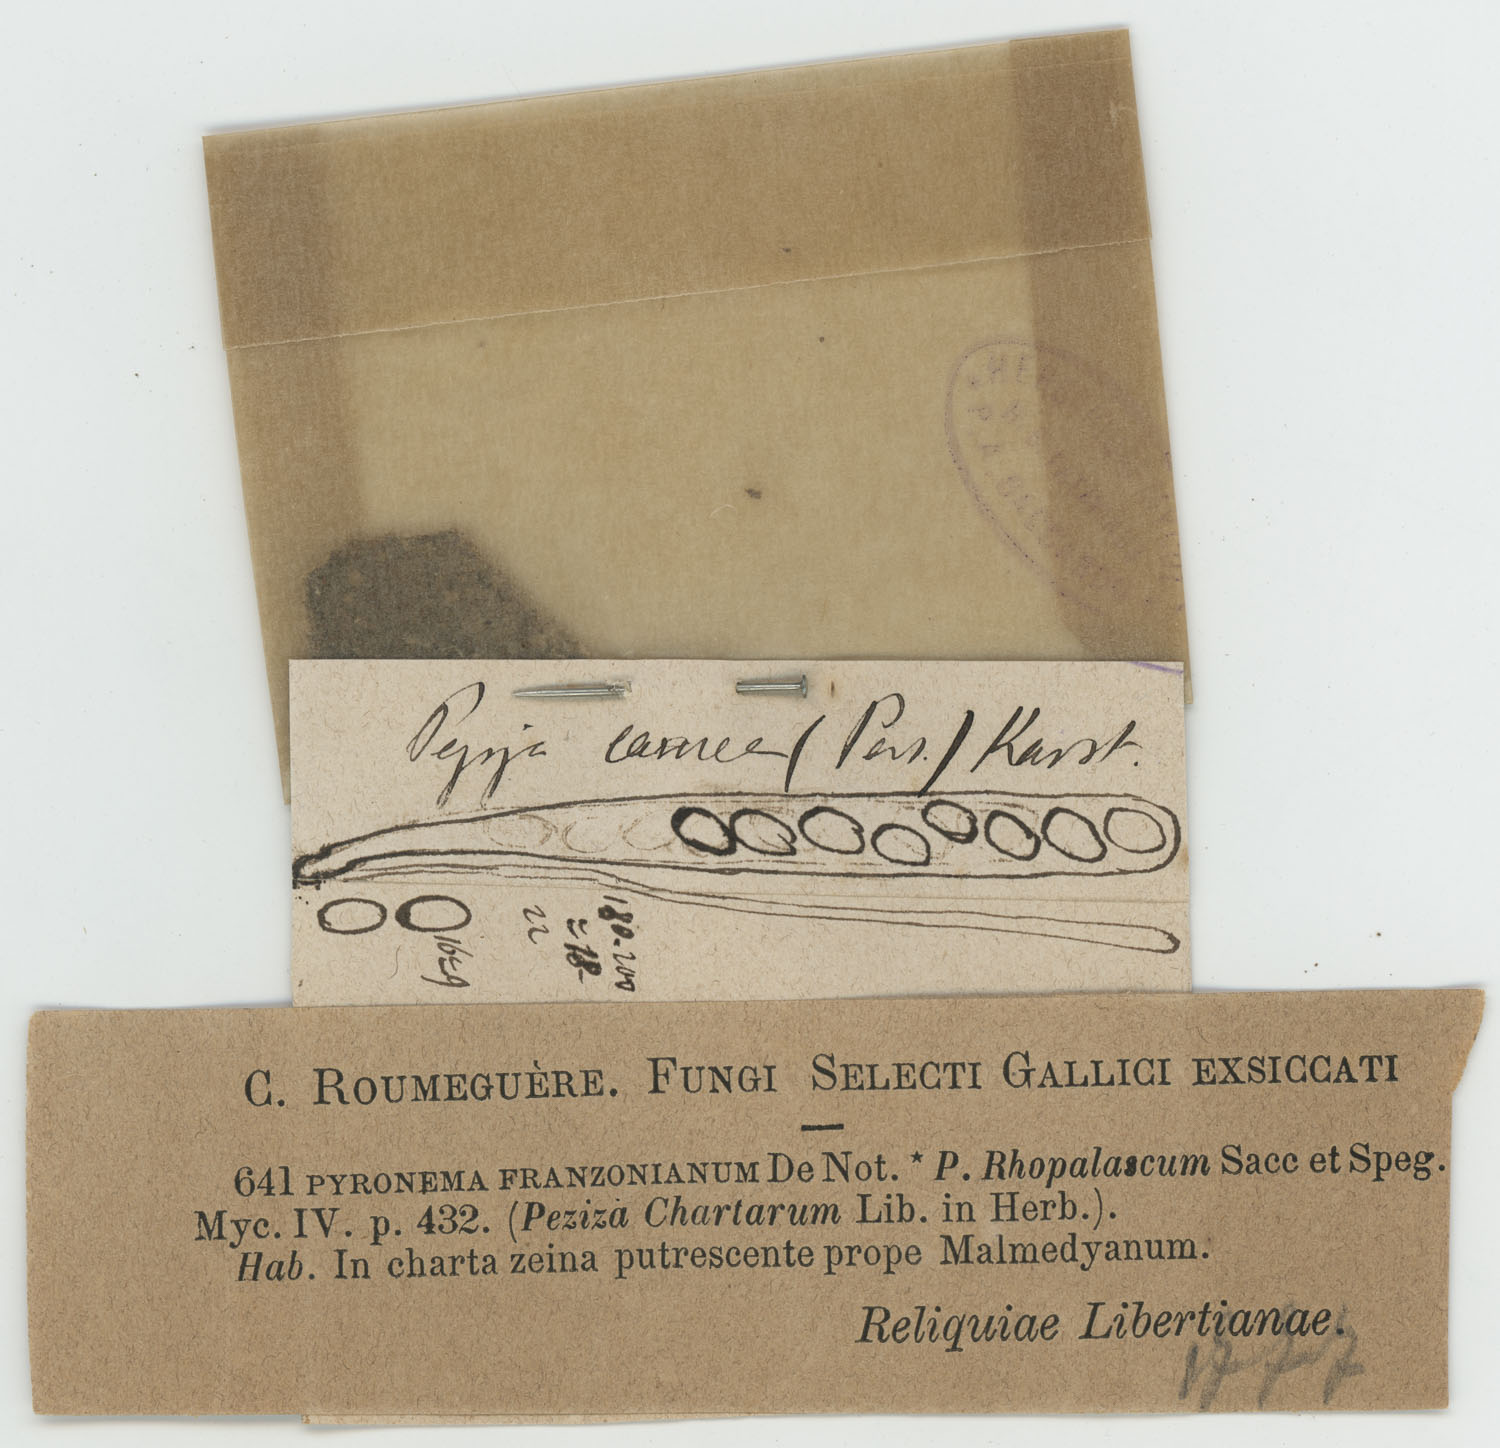 Pezizá carnea (Pers.) Karst.
16=9
22
≈ 18
180-200
C. ROUMEGUÈRE. FUNGI SELECTI GALLICI EXSICCATI
641 PYRONEMA FRANZONIANUM De Not. * P. Rhopalascum Sacc et Speg.
Myc. IV. p. 432. (Peziza Chartarum Lib. in Herb.).
Hab. In charta zeina putrescente prope Malmedyanum.
Reliquiae Libertianae.
1777